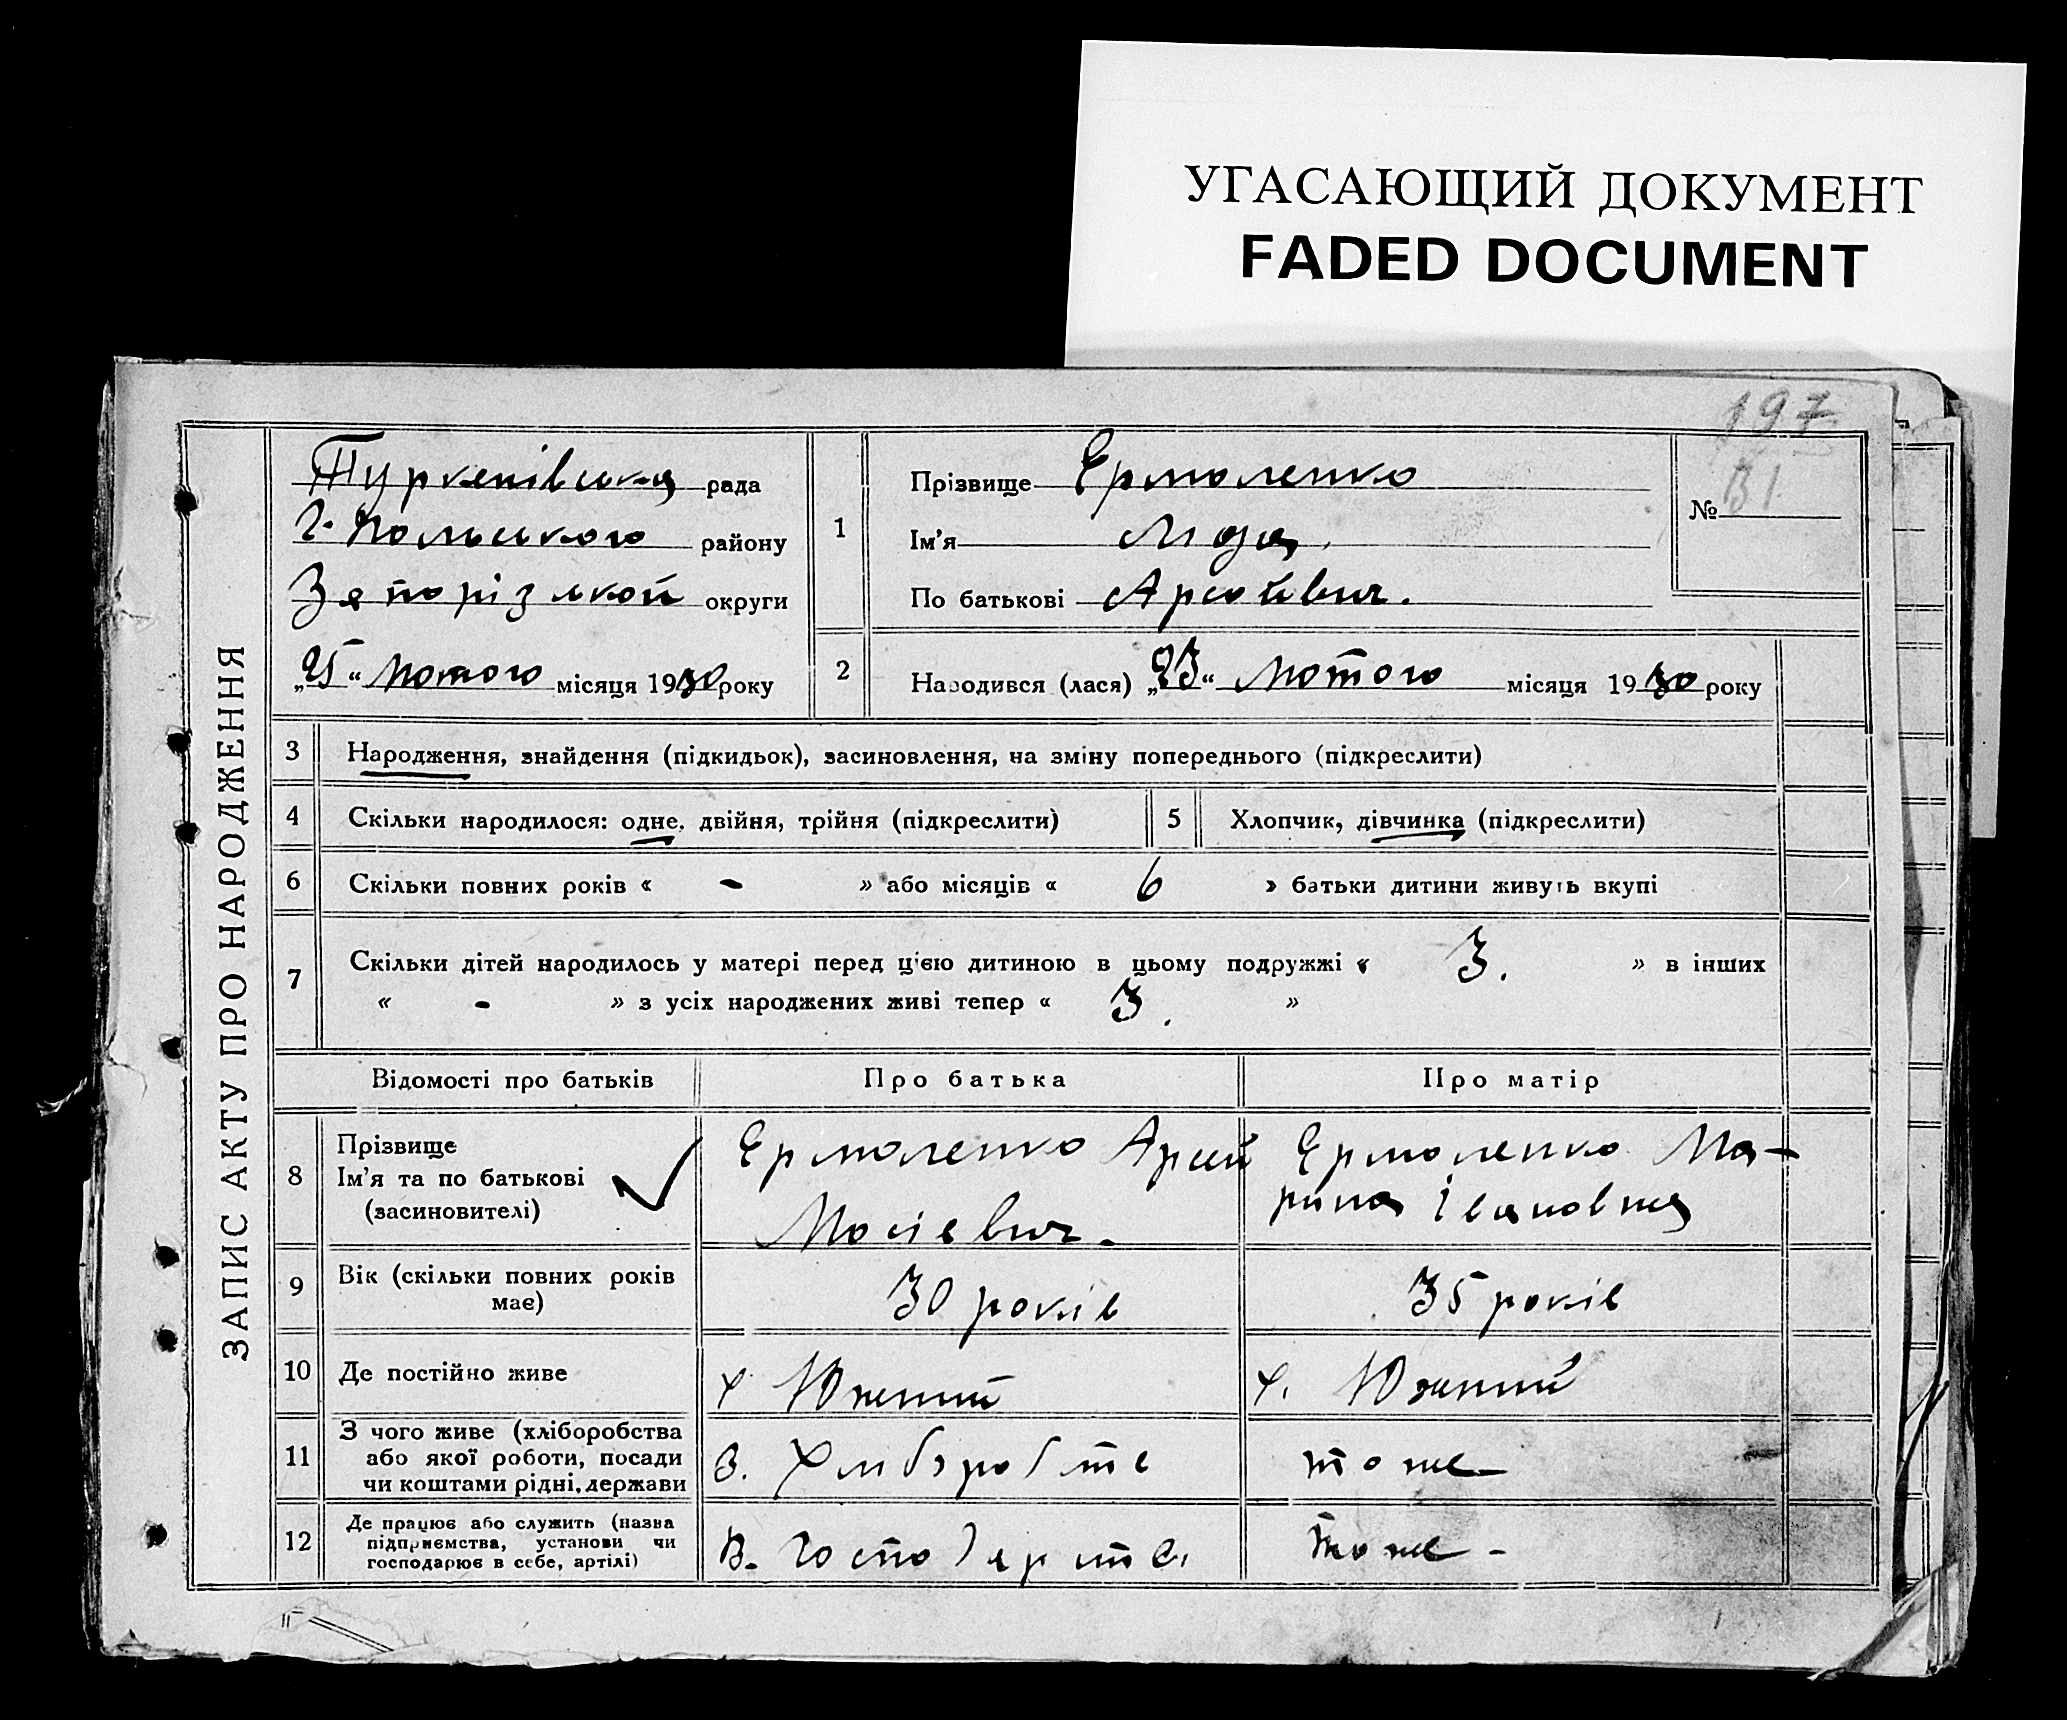 УГАСАЮЩИЙ ДОКУМЕНТ
FADED DOCUMENT
197
ЗАПИС АКТУ ПРО НАРОДЖЕННЯ
Туркенівська рада
Г. Польського району
Запорізької округи
„25“ лютого місяця 1930 року
1
Прізвище Ермоленко
Ім'я Лида
По батькові Арсеївич.
№ 31
2
Народився (лася) „23“ лютого місяця 1930 року
3 Народження, знайдення (підкидьок), засиновлення, на зміну попереднього (підкреслити)
4 Скільки народилося: одне, двійня, трійня (підкреслити)
5 Хлопчик, дівчинка (підкреслити)
6 Скільки повних років « - » або місяців « 6 » батьки дитини живуть вкупі
7 Скільки дітей народилось у матері перед цією дитиною в цьому подружжі « 3. » в інших
« - » з усіх народжених живі тепер « 3. »
Відомості про батьків Про батька Про матір
8 Прізвище
Ім'я та по батькові
(засиновителі)
Ермоленко Арсей
Мосієвич.
Ермоленко Ма-
рина Івановна
9 Вік (скільки повних років
має)
30 років
35 років
10 Де постійно живе
х. Южний
х. Южний
11 З чого живе (хліборобства
або якої роботи, посади
чи коштами рідні, держави
З. Хлиборобства
тоже
12 Де працює або служить (назва
підприємства, установи чи
господарює в себе, артілі)
В. Господарстві
тоже -